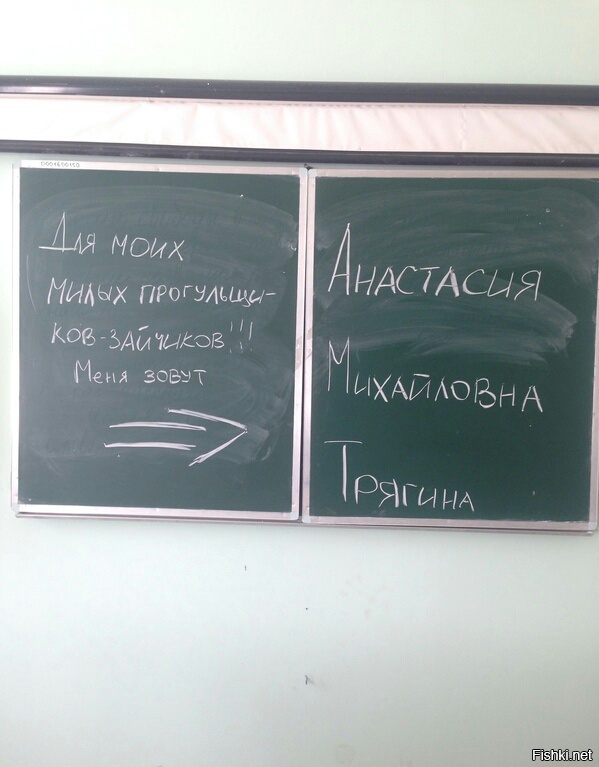 0001600150
Для моих
милых прогульщи-
ков-зайчиков!!!
Меня зовут
Анастасия
Михайловна
Трягина
Fishki.net